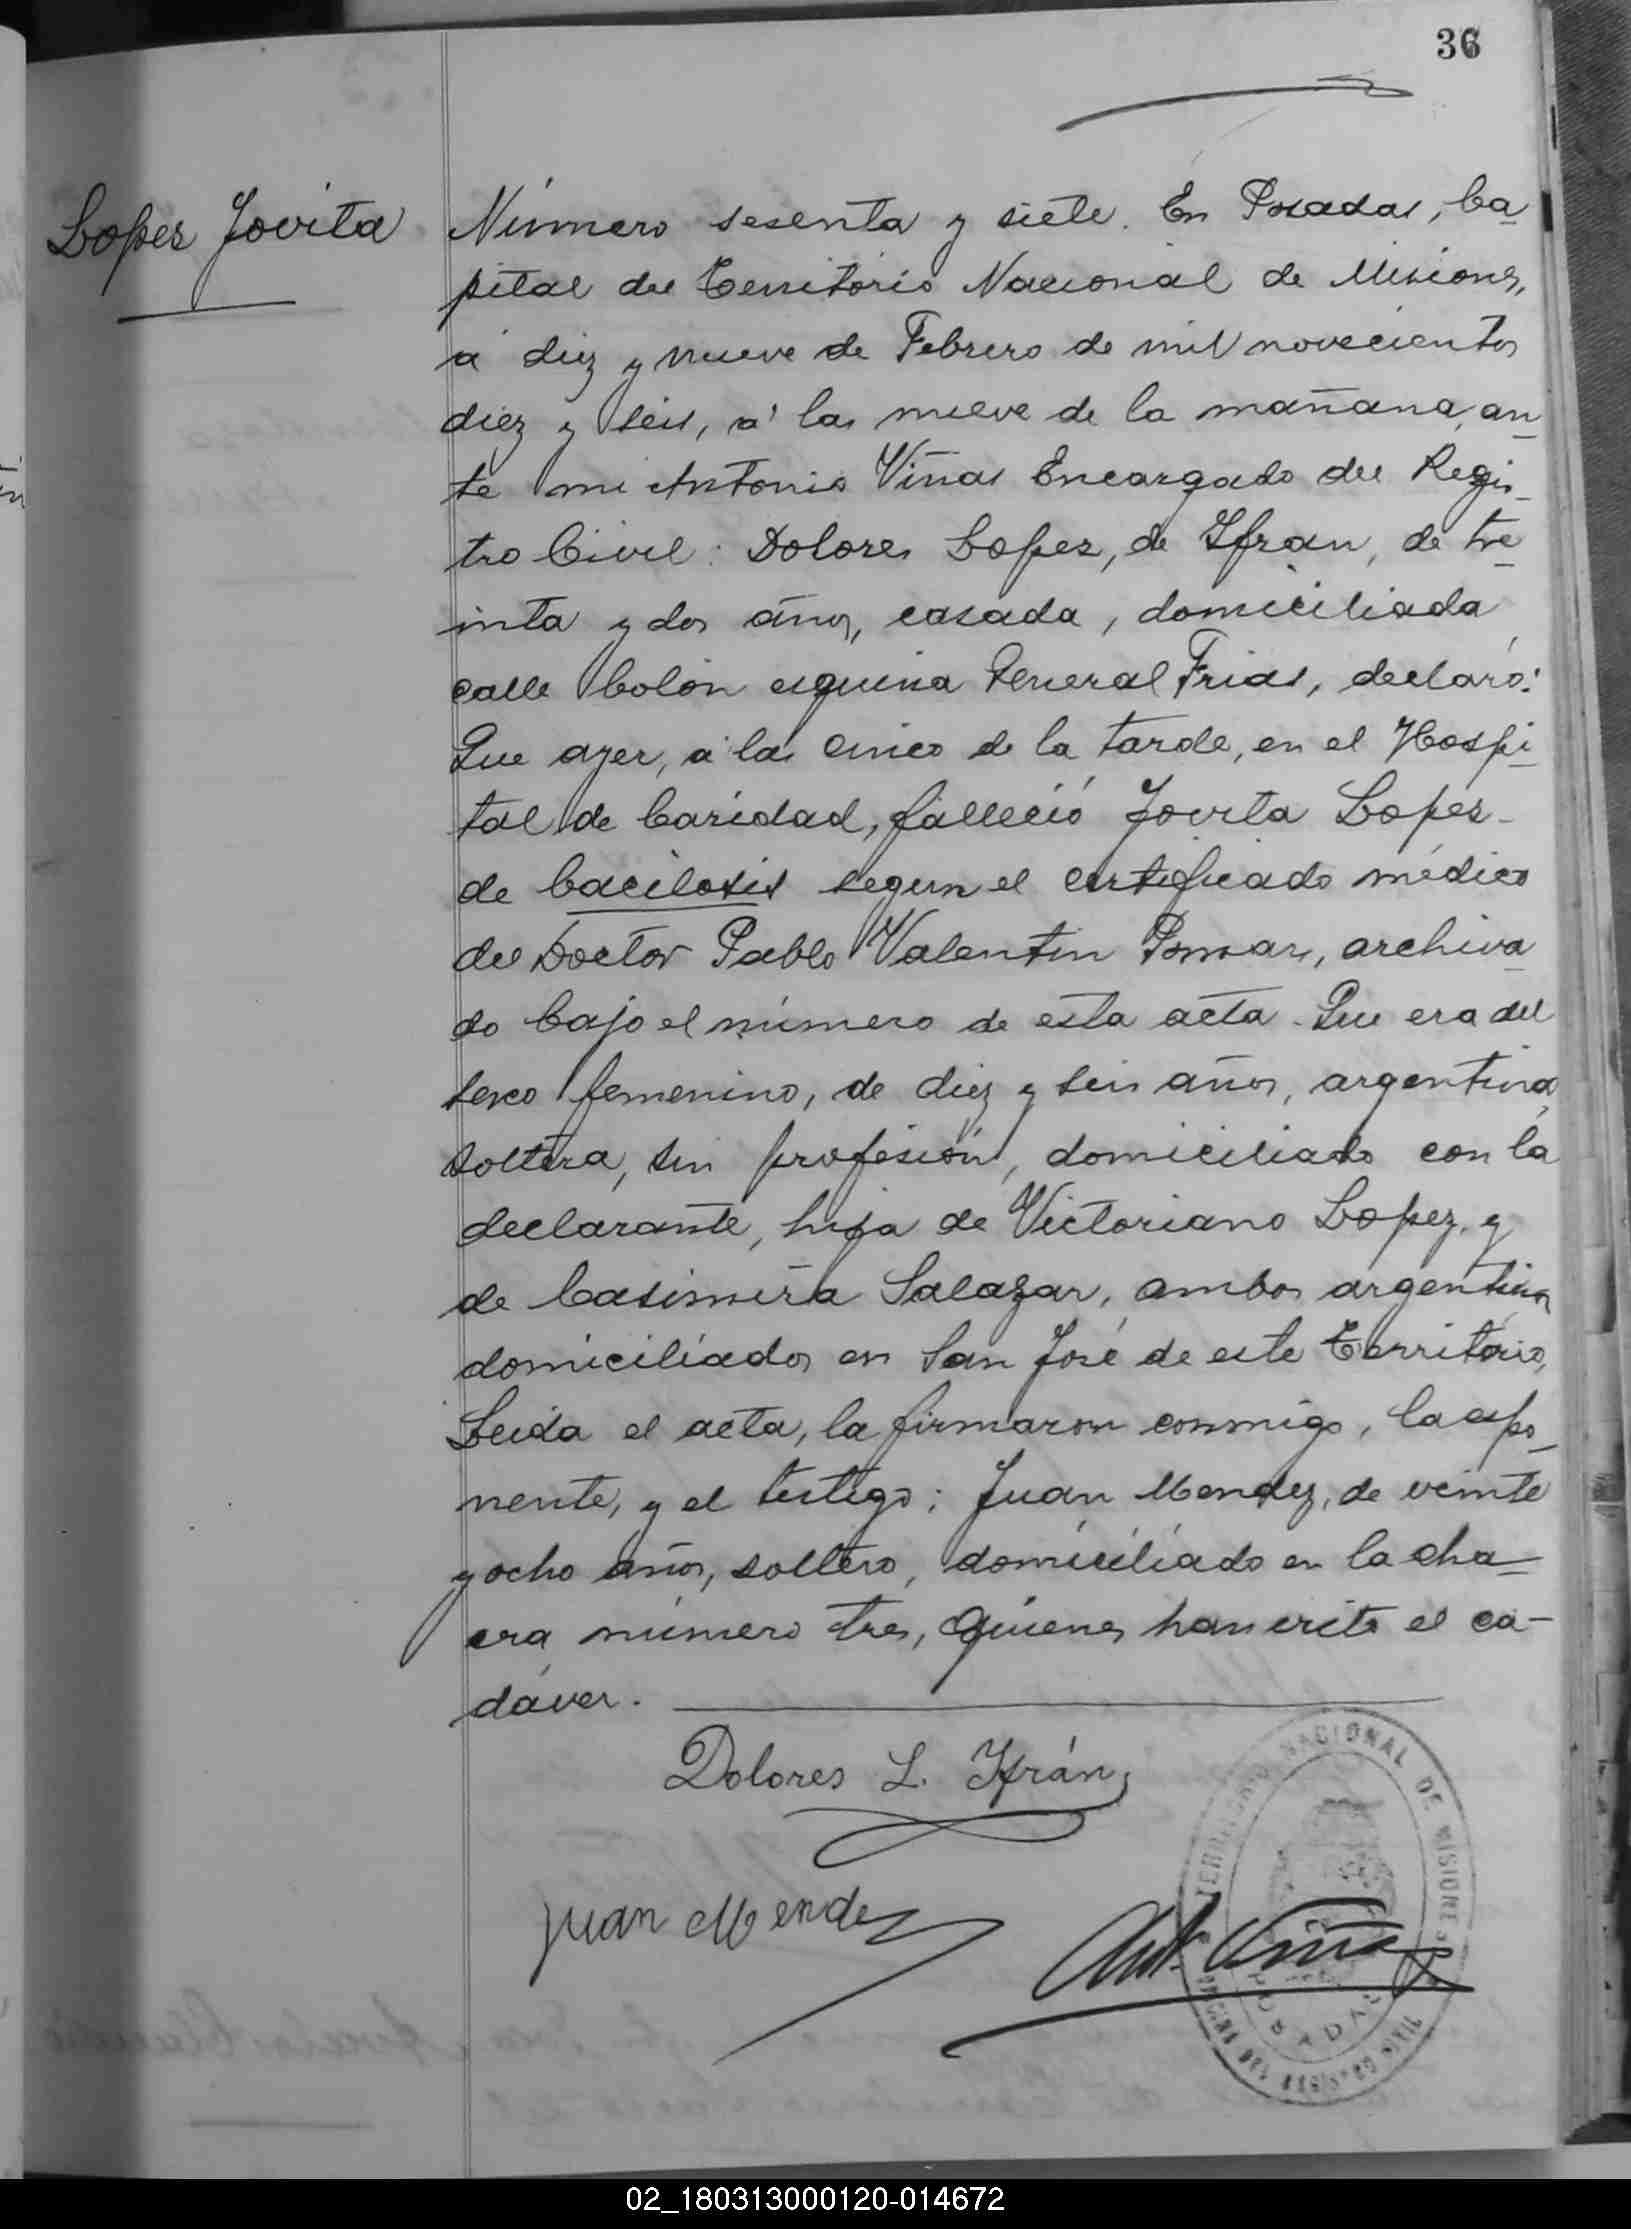 36
Lopez Jovita
Número sesenta y siete. En Posadas, Ca-
pital del Territorio Nacional de Misiones,
á diez y nueve de Febrero de mil novecientos
diez y seis, á las nueve de la mañana, an-
te mi Antonio Viñas Encargado del Regis-
tro Civil: Dolores Lopez, de Ifran, de tre-
inta y dos años, casada, domiciliada
calle Colón esquina General Frias, declaró:
Que ayer, á las cinco de la tarde, en el Hospi-
tal de Caridad, falleció Jovita Lopez-
de bacilosis segun el certificado médico
del Doctor Pablo Valentin Pomar, archiva-
do bajo el número de esta acta. Que era del
sexo femenino, de diez y seis años, argentina,
soltera, sin profesión, domiciliado con la
declarante, hija de Victoriano Lopez, y
de Casimira Salazar, ambos argentinos
domiciliados en San José de este Territorio,
Leida el acta, la firmaron conmigo, la expo-
nente, y el testigo: Juan Mendez, de veinte
y ocho años, soltero, domiciliado en la cha-
cra número tres, quienes han visto el ca-
dáver.
Dolores L. Ifrán
Juan Mendez
Ant. Viñas
TERRITORIO NACIONAL DE MISIONES
POSADAS
OFICINA DEL REGISTRO CIVIL
02_180313000120-014672